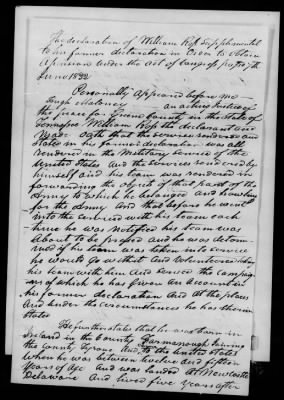 The declaration of William Ross Supplemental
to his former declaration in Order to obtain
a pension under the Act of Congress passed 7th
June 1832
Personally appeared before me
Hugh Maloney an acting Justice of
the peace for Greene County in the State of
Tennessee William Ross the declarant and
Made Oath that the services rendered and
stated in his former declaration was all
rendered in the Military Service of the
United States and the services rendered by
himself and his team was rendered in
forwarding the object of that part of the
Army to which he belonged and hauling
for the Army And that before he went
into the service with his team each
time he was notified his team was
about to be pressed and he was determ
ined if his team was taken into service
he would go with it and Volunteered when
his team with him and served the campaig
ns of which he has given an account in
his former declaration And at the places
and under the circumstances he has therein
Stated
He further states that he was born in
Ireland in the County Farmanough Joining
the County Tyrone and to the United States
when he was between twelve and fifteen
Years of Age and was landed at Newcastle
Delaware and lived five years after